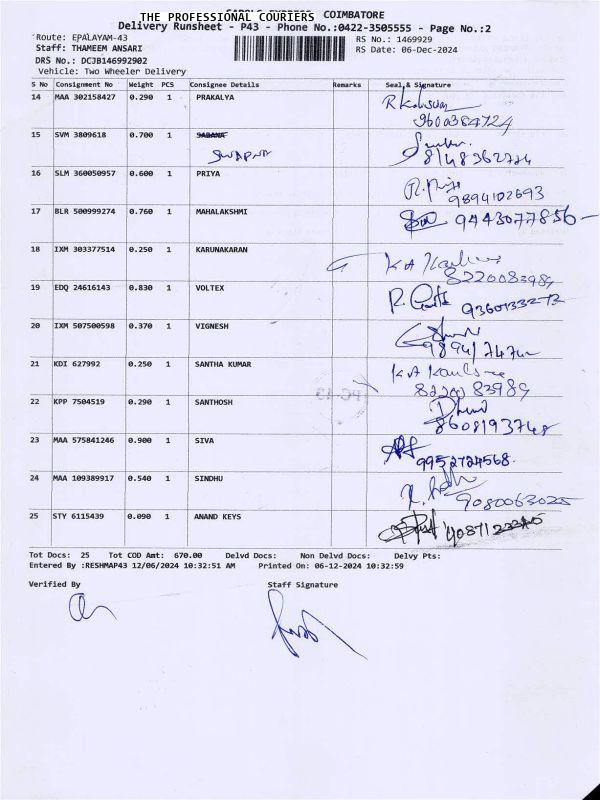 THE PROFESSIONAL COURIERS COIMBATORE
Delivery Runsheet - P43 - Phone No.:0422-3505555 - Page No.:2
Route: EPALAYAM-43 RS No.: 1469929
Staff: THAMEEM ANSARI RS Date: 06-Dec-2024
DRS No.: DCJB146992902
Vehicle: Two Wheeler Delivery
S No Consignment No Weight PCS Consignee Details Remarks Seal & Signature
14 MAA 302158427 0.290 1 PRAKALYA
9600384724
15 SVM 3809618 0.700 1 SADANA
SWAPNA 8148362724
16 SLM 360050957 0.600 1 PRIYA
9894102693
17 BLR 500999274 0.760 1 MAHALAKSHMI 9443077856
18 IXM 303377514 0.250 1 KARUNAKARAN
8220083989
19 EDQ 24616143 0.830 1 VOLTEX
9360133273
20 IXM 507500598 0.370 1 VIGNESH
21 KDI 627992 0.250 1 SANTHA KUMAR
8220083989
22 KPP 7504519 0.290 1 SANTHOSH
8608193748
23 MAA 575841246 0.900 1 SIVA
9952724568
24 MAA 109389917 0.540 1 SINDHU
9080063025
25 STY 6115439 0.090 1 ANAND KEYS
Tot Docs: 25 Tot COD Amt: 670.00 Delvd Docs: Non Delvd Docs: Delvy Pts:
Entered By :RESHMAP43 12/06/2024 10:32:51 AM Printed On: 06-12-2024 10:32:59
Verified By Staff Signature